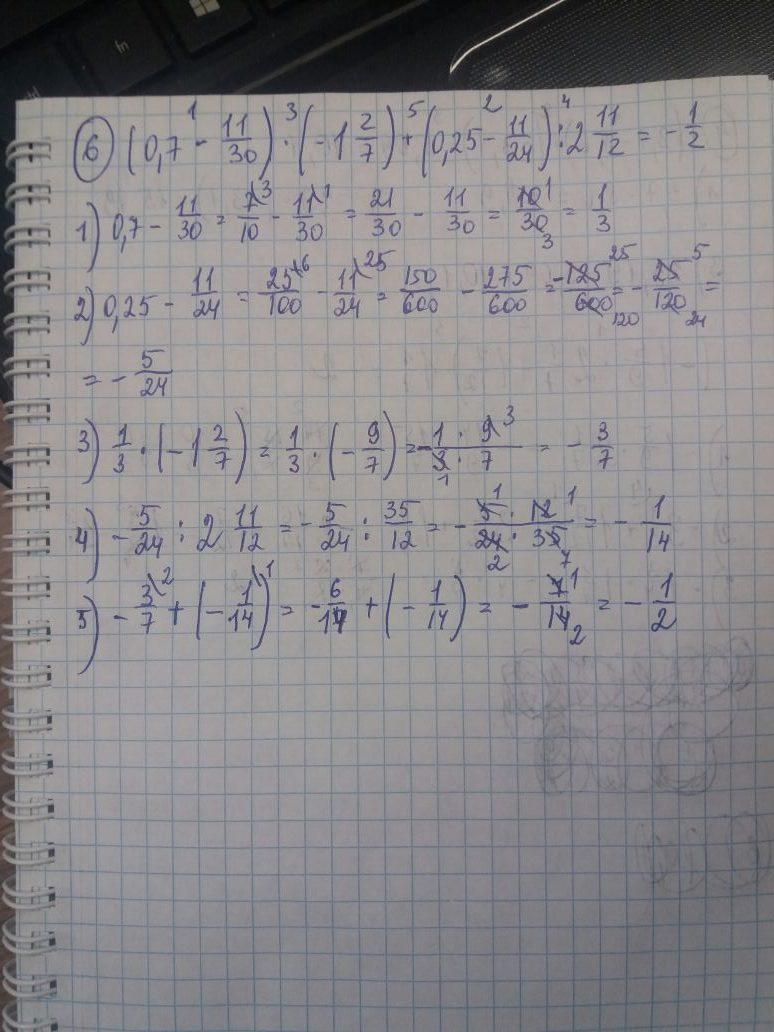 6 (0,7 - 11/30) · (-1 2/7) + (0,25 - 11/24) : 2 11/12 = - 1/2
1) 0,7 - 11/30 = 7/10 - 11/30 = 21/30 - 11/30 = 10/30 = 1/3
2) 0,25 - 11/24 = 25/100 - 11/24 = 150/600 - 275/600 = -125/600 = - 25/120 =
= - 5/24
3) 1/3 · (-1 2/7) = 1/3 · (- 9/7) = - 1 · 9/3 · 7 = - 3/7
4) - 5/24 : 2 11/12 = - 5/24 : 35/12 = - 5 · 12/24 · 35 = - 1/14
5) - 3/7 + (- 1/14) = - 6/14 + (- 1/14) = - 7/14 = - 1/2